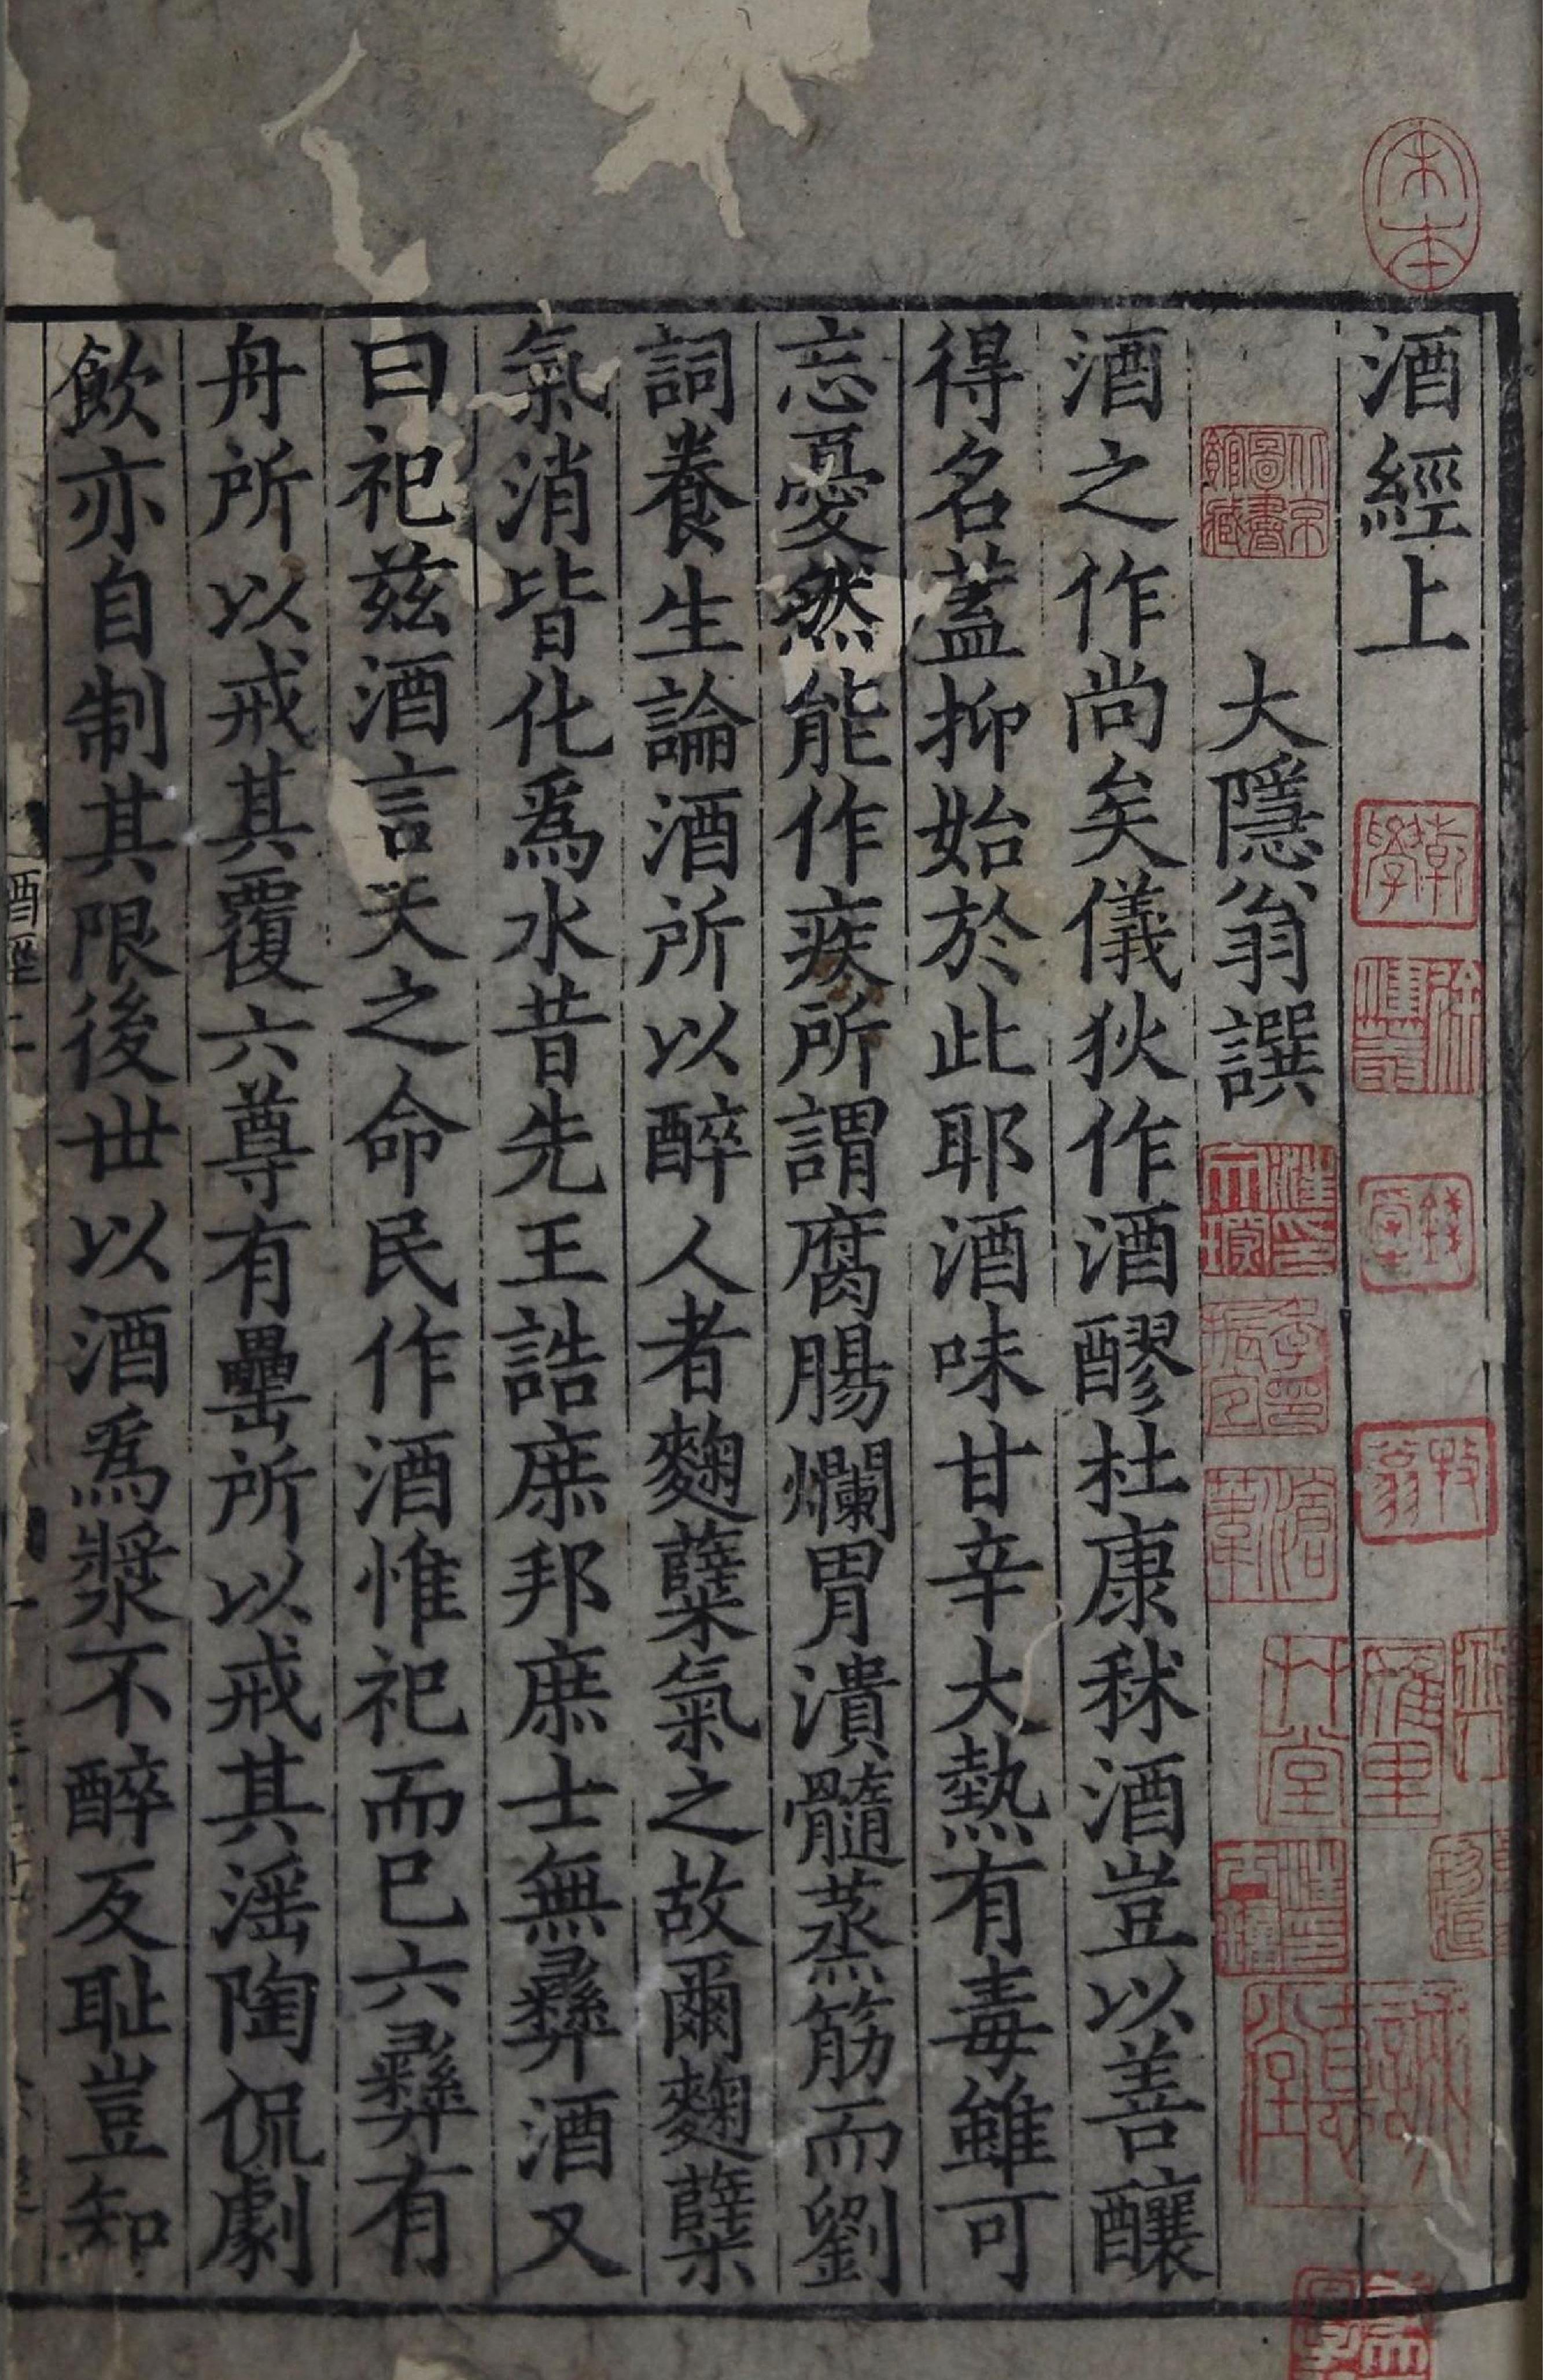 酒經上
大隱翁譔
酒之作尚矣儀狄作酒醪杜康秫酒豈以善釀
得名蓋抑始於此耶酒味甘辛大熱有毒雖可
忘憂然能作疾所謂腐腸爛胃潰髓蒸筋而劉
詞養生論酒所以醉人者麴糵氣之故爾麴糵
氣消皆化爲水昔先王誥庶邦庶士無彝酒又
曰祀兹酒言天之命民作酒惟祀而巳六彝有
舟所以戒其覆六尊有罍所以戒其滛陶侃劇
飲亦自制其限後世以酒爲漿不醉反恥豈知
北京圖書館藏
錢
牧翁